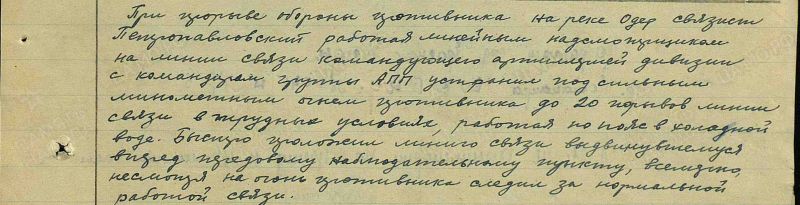 При прорыве обороны противника на реке Одер связист
Петропавловский работая линейным надсмотрщиком
на линии связи командующего артиллерией дивизии
с командиром группы АПП устранил под сильным
минометным огнем противника до 20 порывов линии
связи в трудных условиях, работая по пояс в холодной
воде. Быстро проложил линию связи выдвинувшемуся
вперед передовому наблюдательному пункту,
несмотря на огонь противника следил за нормальной
работой связи.